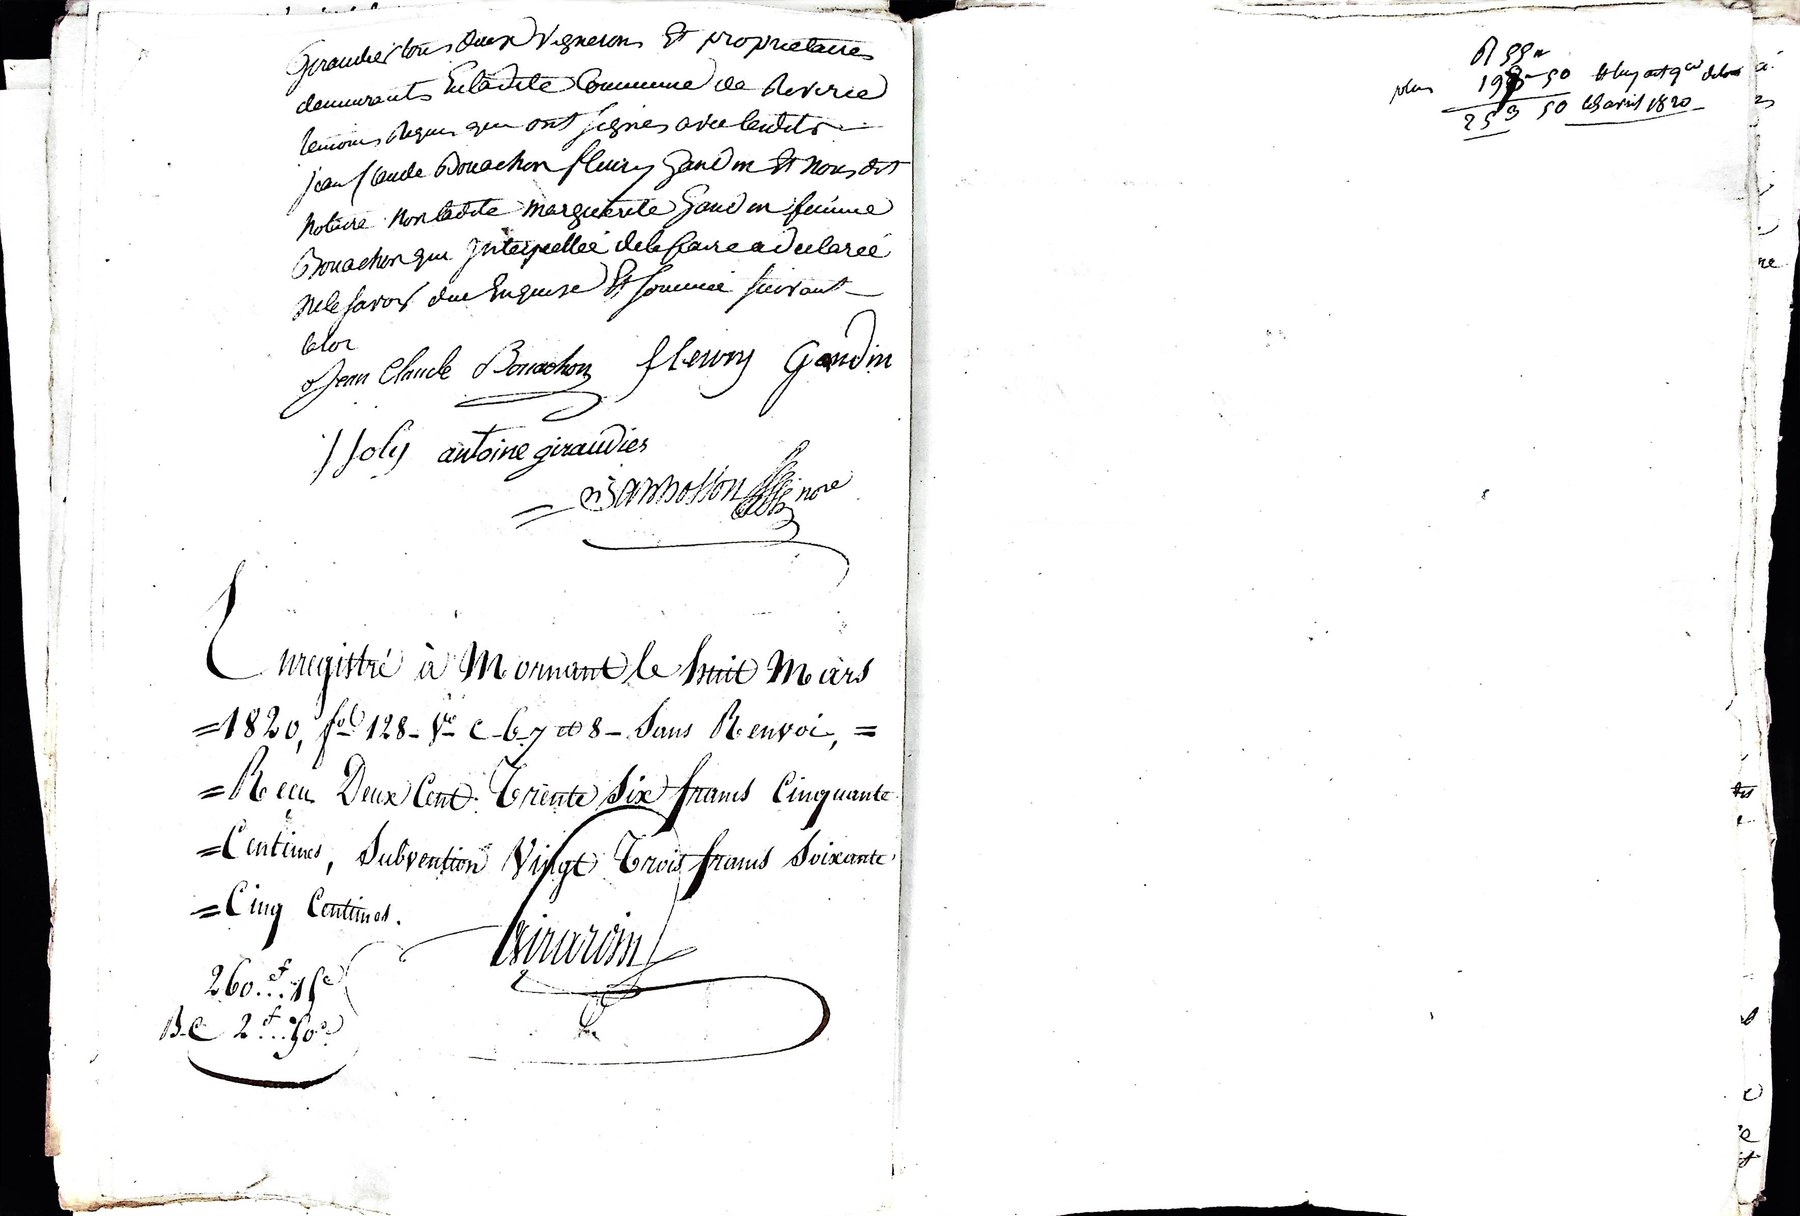 Giraudier tous deux vignerons Et propriétaires
demeurants En ladite Commune de Riverie
temoins Requis qui ont signés avec lesdits
jean Claude Bouachon fleury Gaudin Et nous dit
notaire non ladite marguerite Gaudin femme
Bouachon qui Interpellée de le faire a declaré
ne le savoir due Enquise Et sommée suivant
la loi
Jean Claude Bouachon fleury Gaudin
J Joly antoine giraudier
nore
Enregistré à Mornant le huit Mars
=1820, fol 128 - Vo C 6 7 et 8 - Sans Renvoi, =
=Recu Deux Cent Trente Six francs Cinquante
=Centimes, Subvention Vingt Trois francs Soixante
=Cinq Centimes.
Girardin
260 f... 15 c
B. C 2 f... 50 c
R 55
plus 198-50
253 50 avril 1820